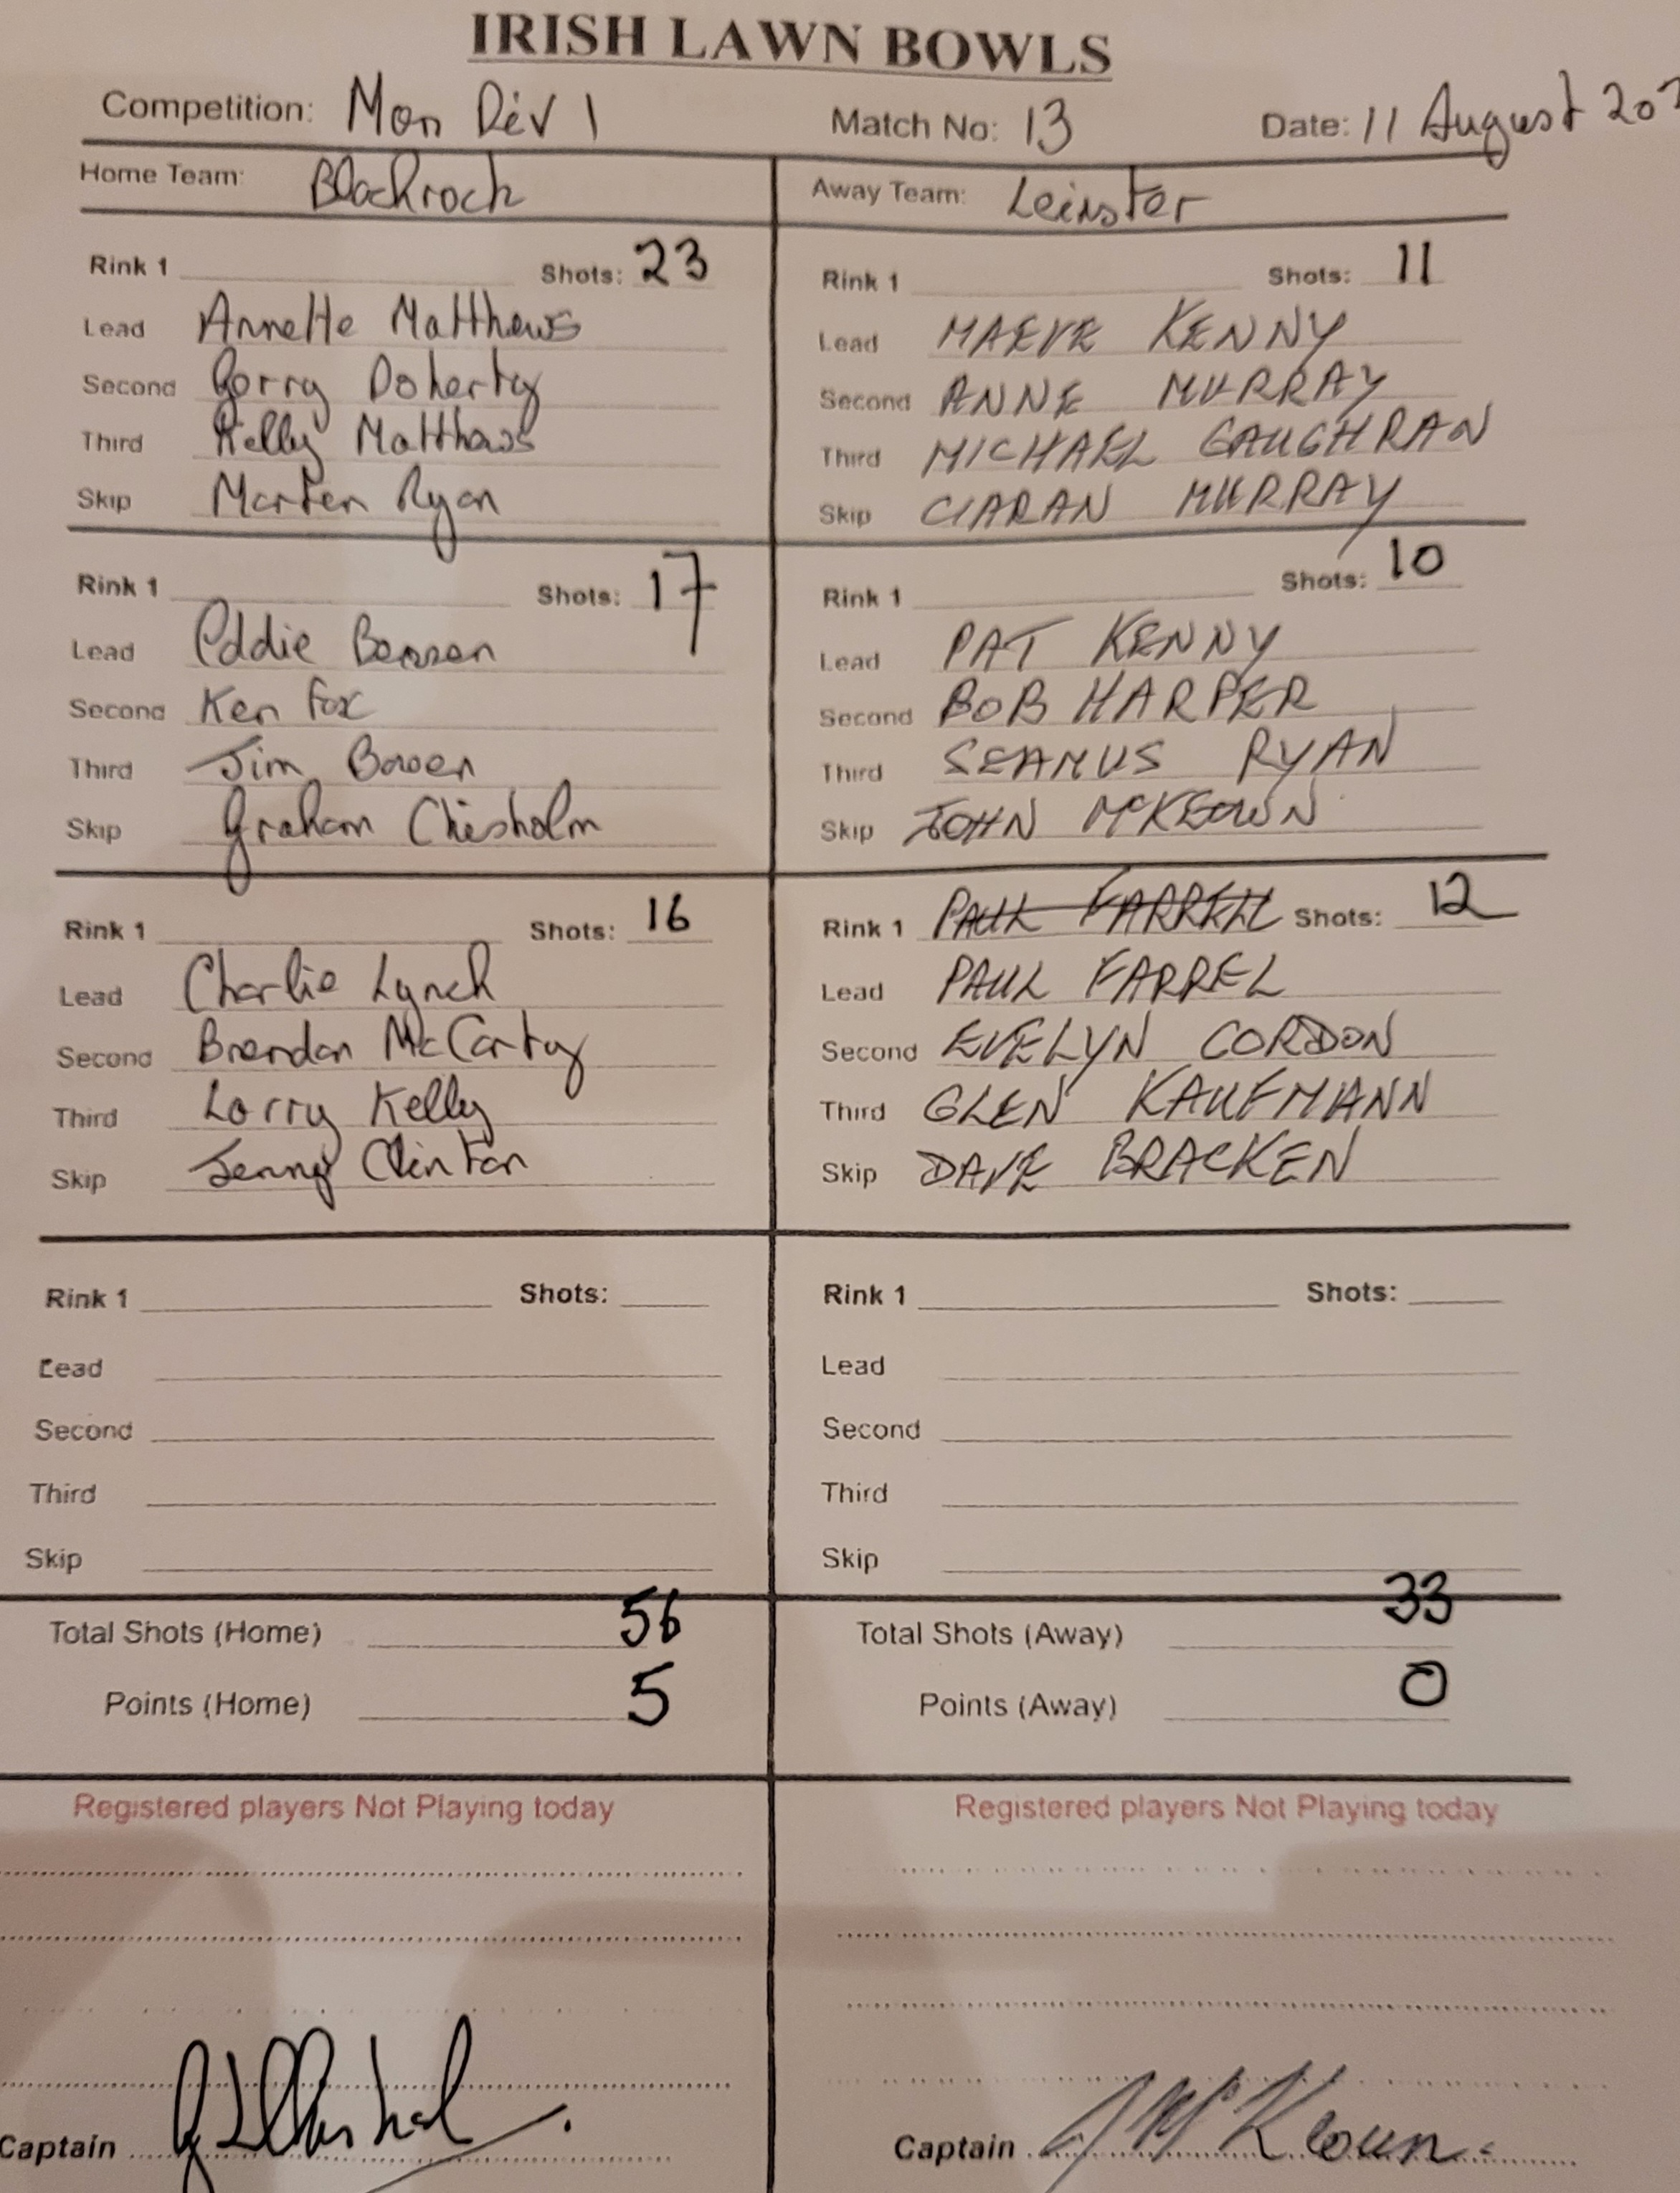 IRISH LAWN BOWLS
Competition: Mon Div 1 Match No: 13 Date: 11 August
Home Team: Blackrock Away Team: Leinster
Rink 1 Shots: 23 Rink 1 Shots: 11
Lead Annette Matthews Lead MAEVE KENNY
Second Gerry Doherty Second ANNE MURRAY
Third Kelly Matthews Third MICHAEL GAUGHRAN
Skip Marten Ryan Skip CIARAN MURRAY
Rink 1 Shots: 17 Rink 1 Shots: 10
Lead Eddie Lead PAT KENNY
Second Ken Fox Second BOB HARPER
Third Jim Bowen Third SEAMUS RYAN
Skip Graham Chisholm Skip JOHN McKEOWN
Rink 1 Shots: 16 Rink 1 PAUL FARRELL Shots: 12
Lead Charlie Lynch Lead PAUL FARREL
Second Brendan McCarty Second EVELYN CORDON
Third Larry Kelly Third GLEN KAUFMANN
Skip Jenny Clinton Skip DAVE BRACKEN
Rink 1 Shots: Rink 1 Shots:
Lead Lead
Second Second
Third Third
Skip Skip
Total Shots (Home) 56 Total Shots (Away) 33
Points (Home) 5 Points (Away) 0
Registered players Not Playing today Registered players Not Playing today
Captain Captain J McKeown